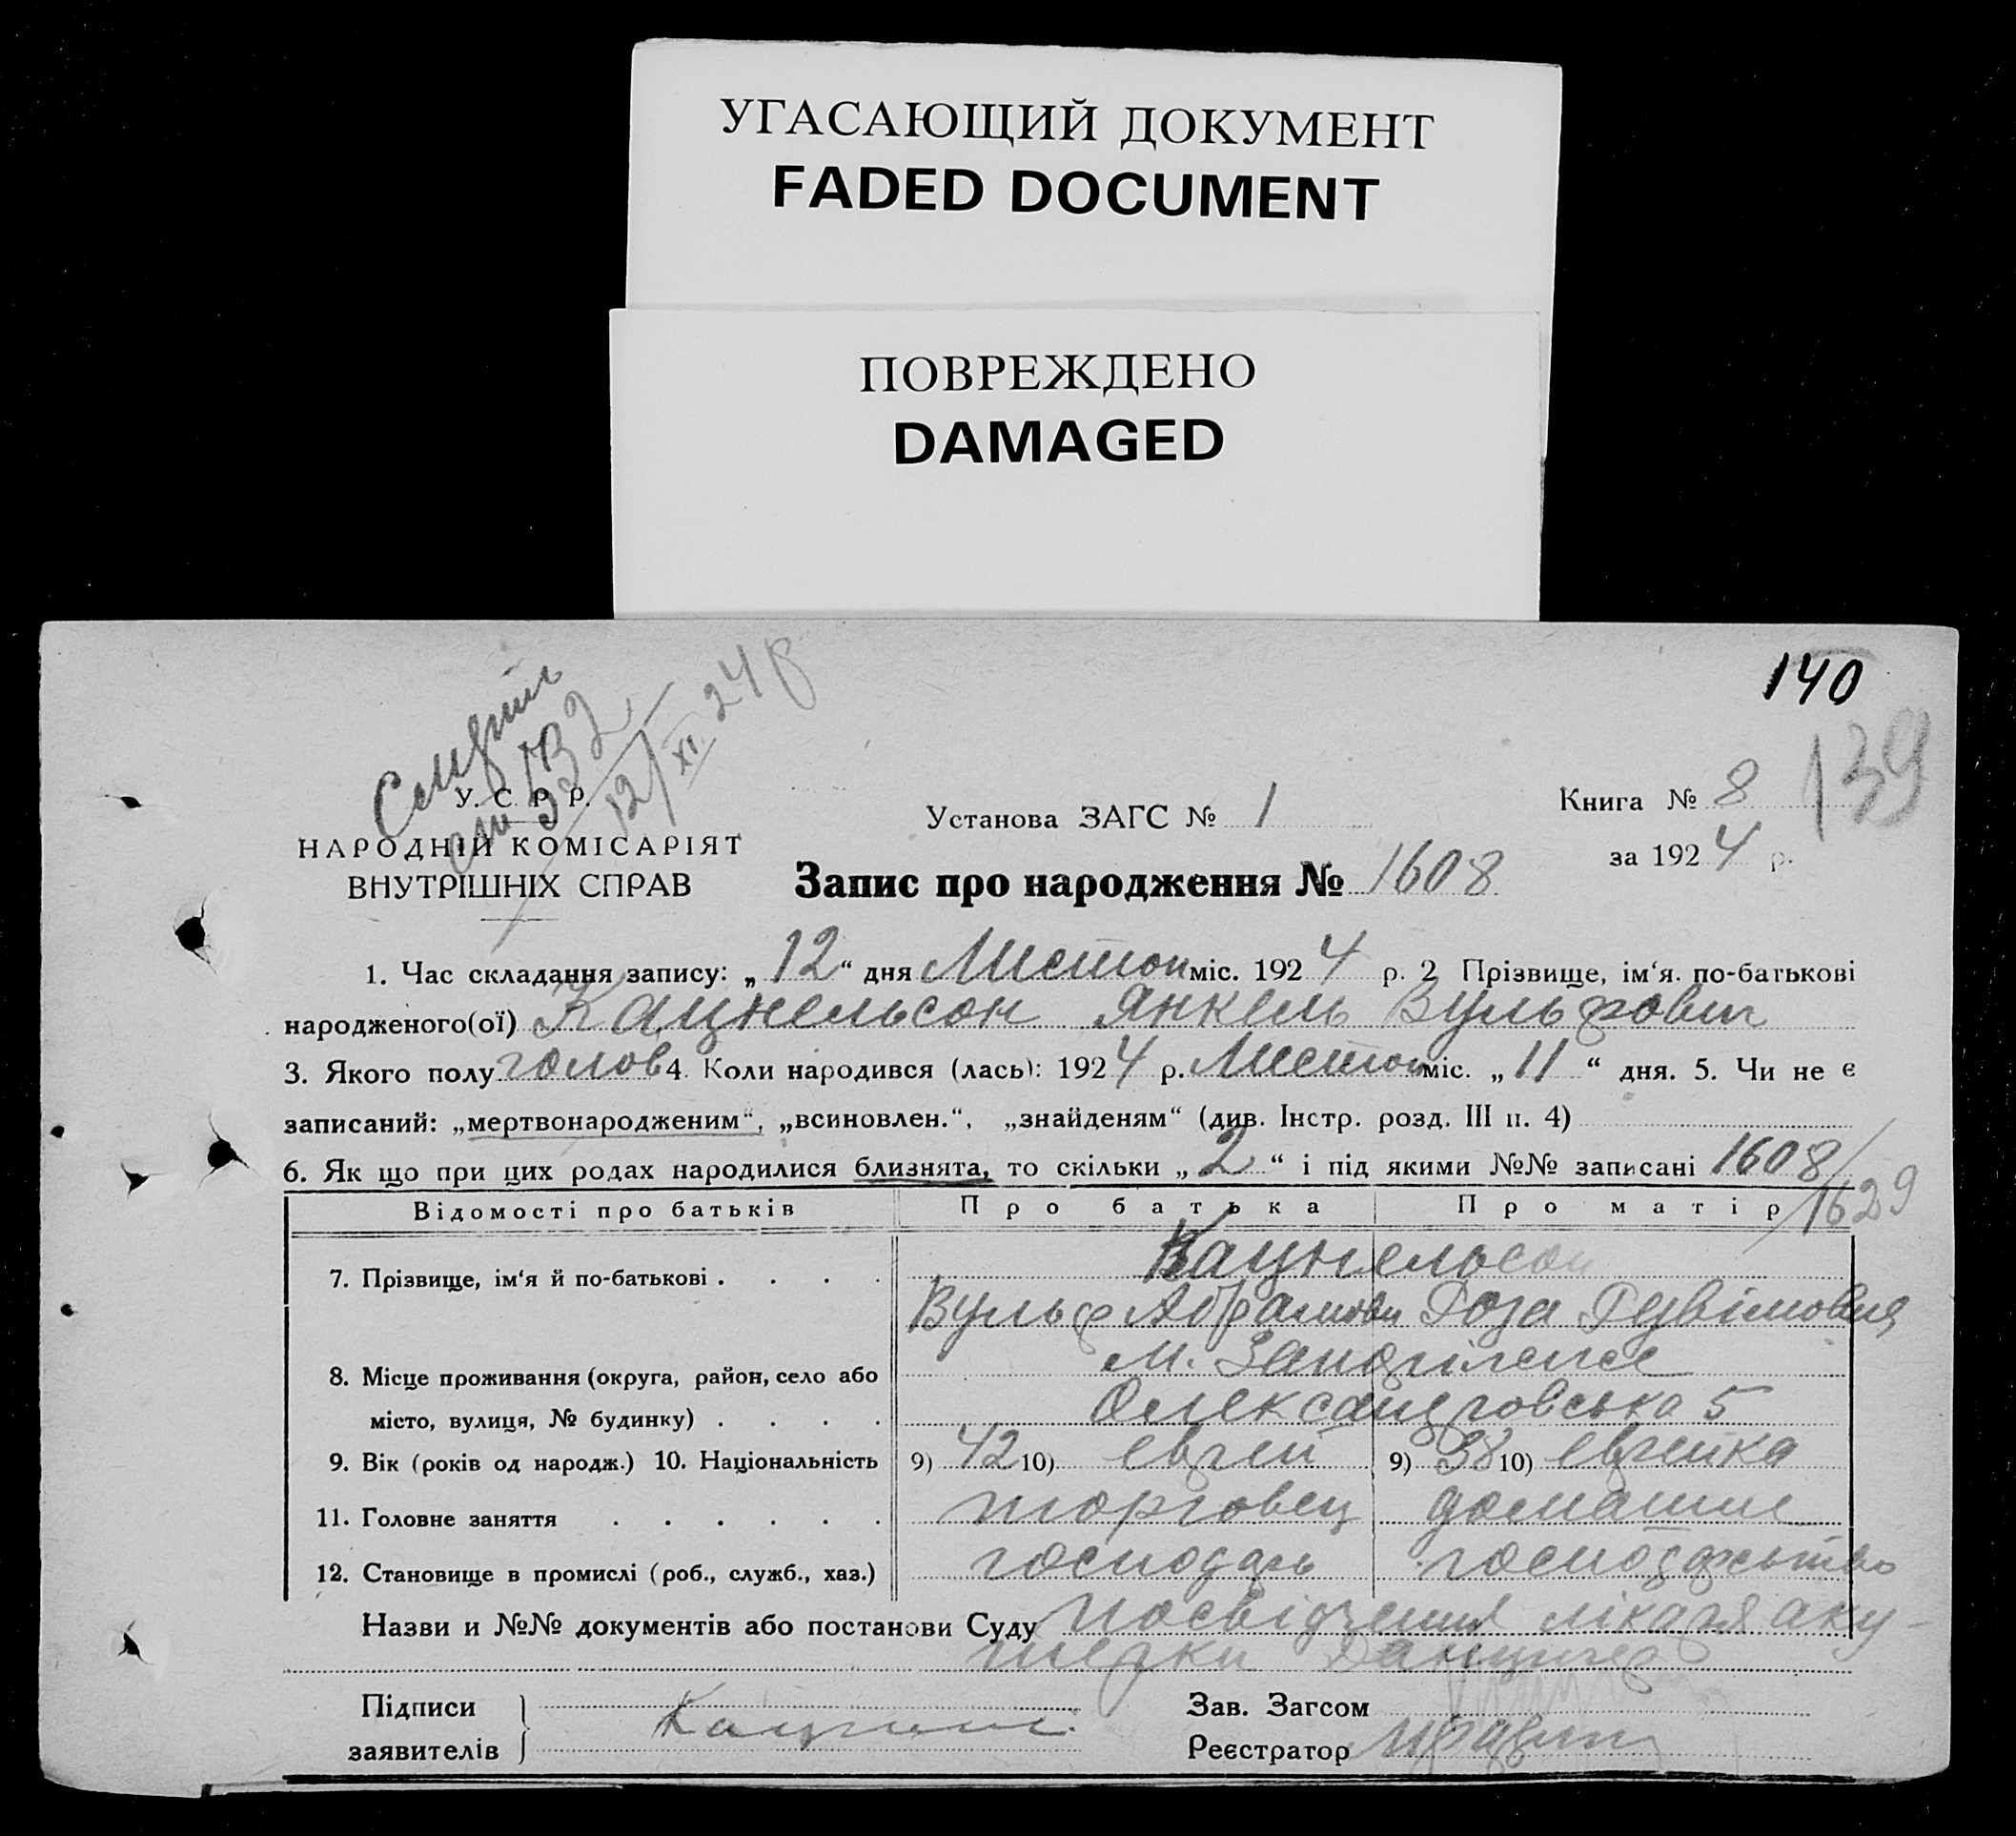 УГАСАЮЩИЙ ДОКУМЕНТ
FADED DOCUMENT
ПОВРЕЖДЕНО
DAMAGED
140
139
12/XI 24 р
У. С. Р. Р.
НАРОДНІЙ КОМІСАРІЯТ
ВНУТРІШНІХ СПРАВ
Установа ЗАГС № 1
Книга № 8
за 1924 р.
Запис про народження № 1608
1. Час складання запису: „12“ дня Листоп міс. 1924 р. 2 Прізвище, ім‘я. по-батькові
народженого(ої) Кацнельсон Янкель Вульфович
3. Якого полу голов 4. Коли народився (лась): 1924 р. Листоп міс. „11“ дня. 5. Чи не є
записаний: „мертвонародженим“, „всиновлен.“, „знайденям“ (див. Інстр. розд. III п. 4)
6. Як що при цих родах народилися близнята, то скільки „2“ і під якими №№ записані 1608/
1629
Відомості про батьків Про батька Про матір
7. Прізвище, ім‘я й по-батькові . . . . Кацнельсон
Вульф Абрамови Роза
8. Місце проживання (округа, район, село або м.
місто, вулиця, № будинку) . . . . Олександровська 5
9. Вік (років од народж.) 10. Національність 9) 42 10) еврей 9) 38 10) еврейка
11. Головне заняття . . . . . . торговец домашнє
12. Становище в промислі (роб., служб., хаз.) господарь господарство
Назви и №№ документів або постанови Суду посвідчення лікаря аку-
шерки
Підписи
заявителів
Зав. Загсом
Реєстратор